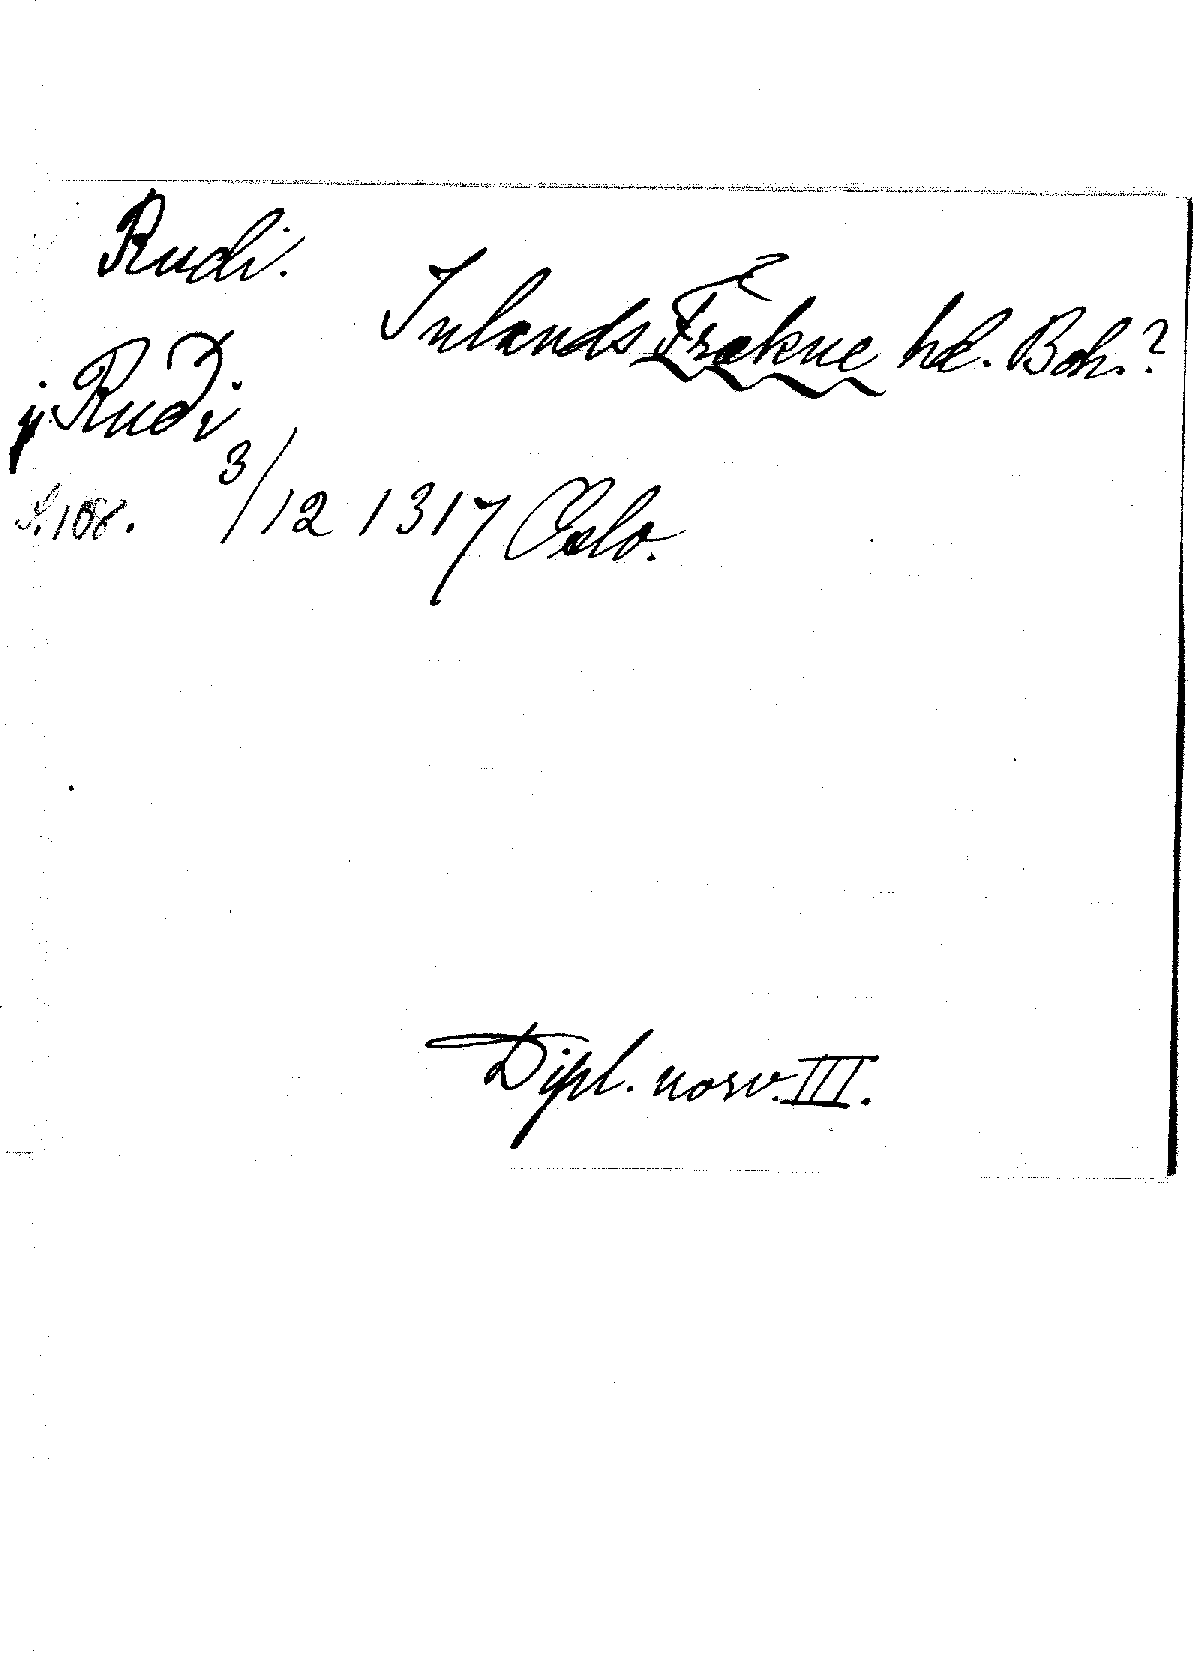 Rudi.
Inlands Frækne hd. Boh.?
j Rudi
S. 108. 3/12 1317 Oslo.
Dipl. norv. III.